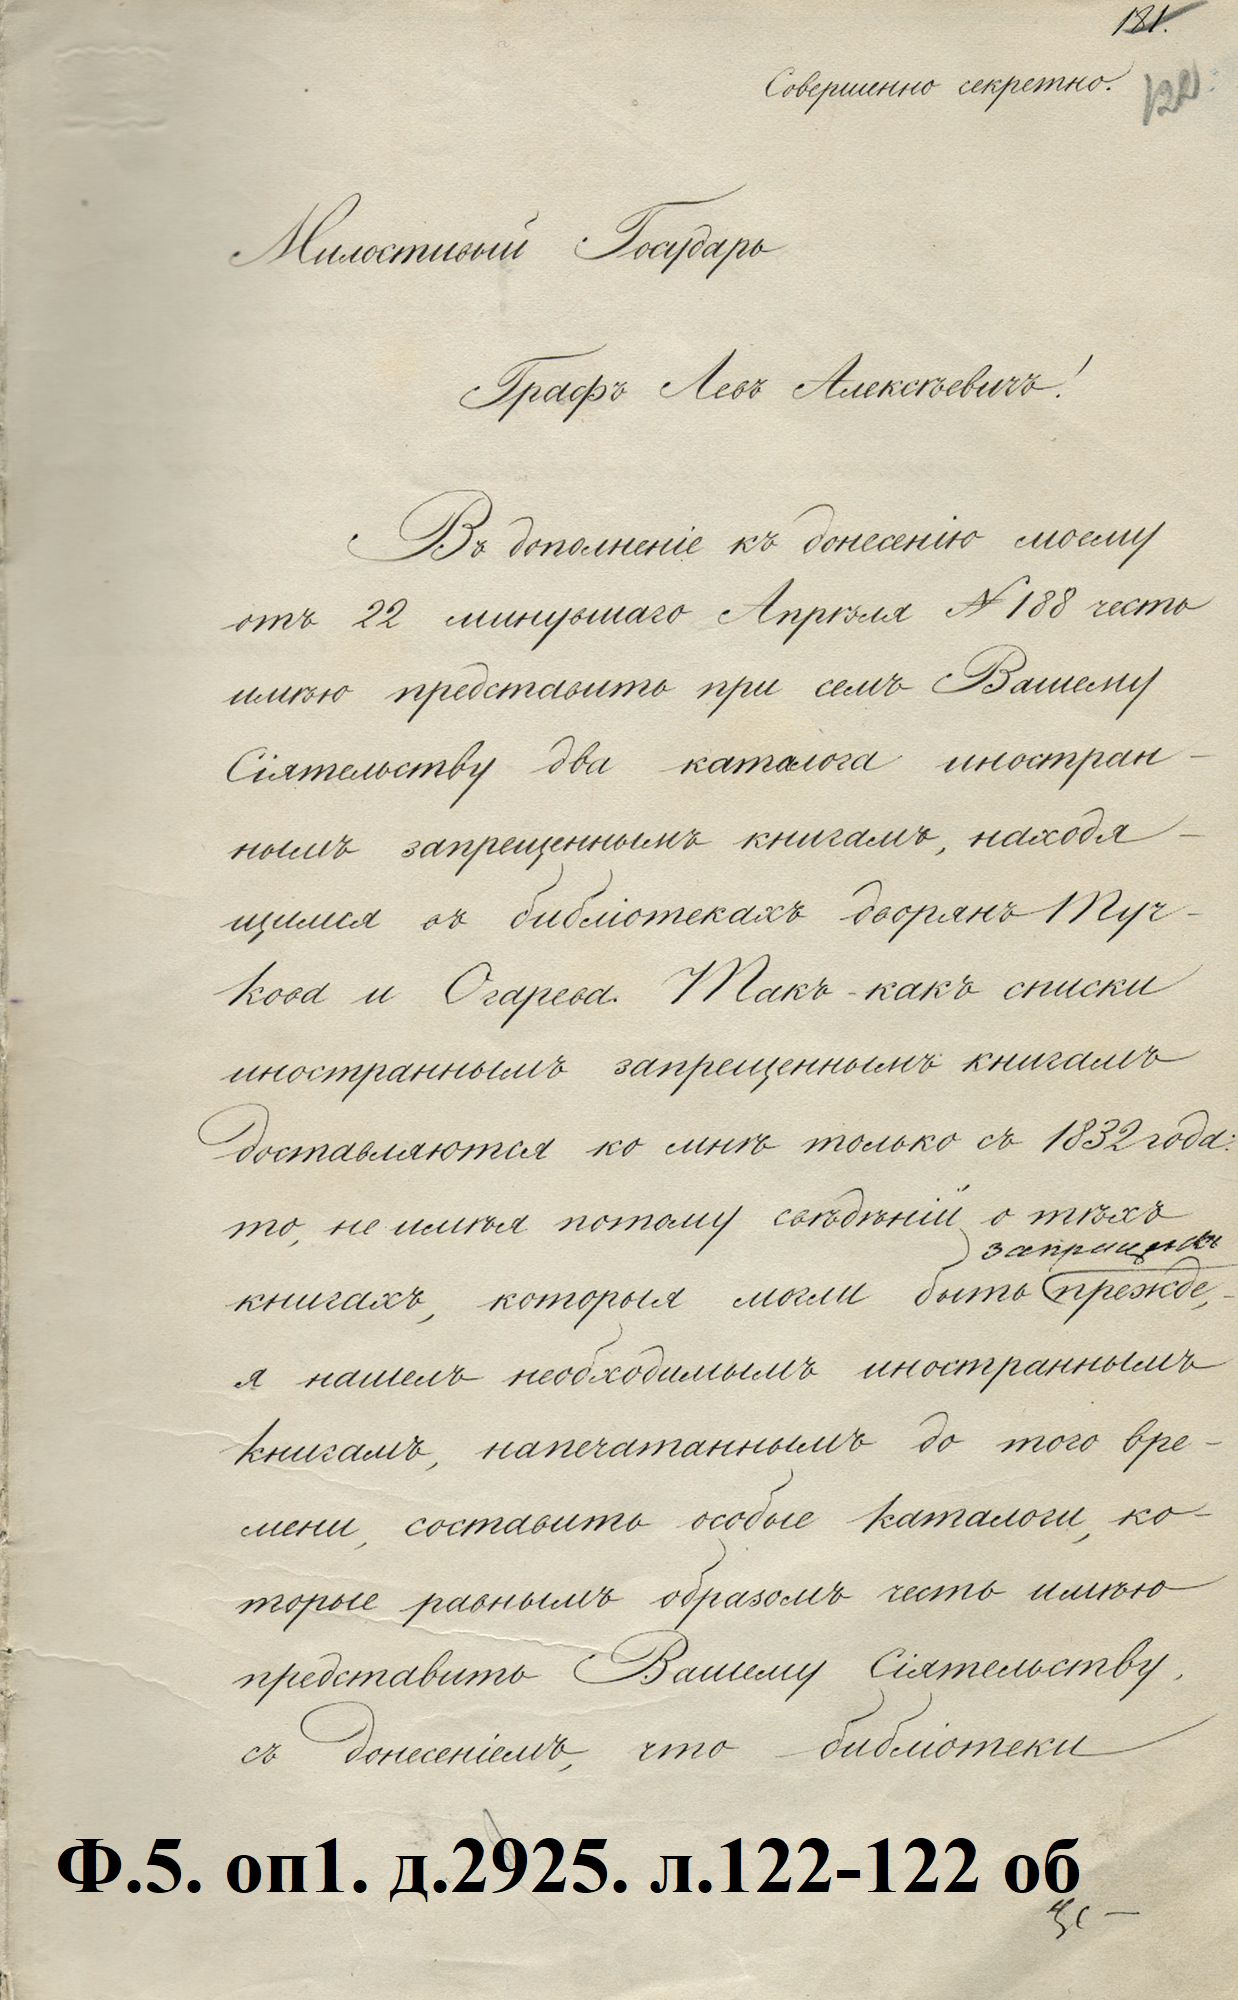 181.
Совершенно секретно.
122
Милостивый Государь
Графъ Левъ Алексѣевичъ!
Въ дополненіе къ донесенію моему
отъ 22 минувшаго Апрѣля № 188 честь
имѣю представить при семъ Вашему
Сіятельству два каталога иностран-
нымъ запрещеннымъ книгамъ, находя-
щимся въ библіотекахъ дворянъ Туч-
кова и Огарева. Такъ-какъ списки
иностраннымъ запрещеннымъ книгамъ
доставляются ко мнѣ только съ 1832 года:
то, не имѣя потому свѣдѣній о тѣхъ
запрещены
книгахъ, которыя могли быть прежде,
я нашелъ необходимымъ иностраннымъ
книгамъ, напечатаннымъ до того вре-
мени, составить особые каталоги, ко-
торые равнымъ образомъ честь имѣю
представить Вашему Сіятельству,
съ донесеніемъ, что библіотеки
Ф.5. оп1. д.2925. л.122-122 об